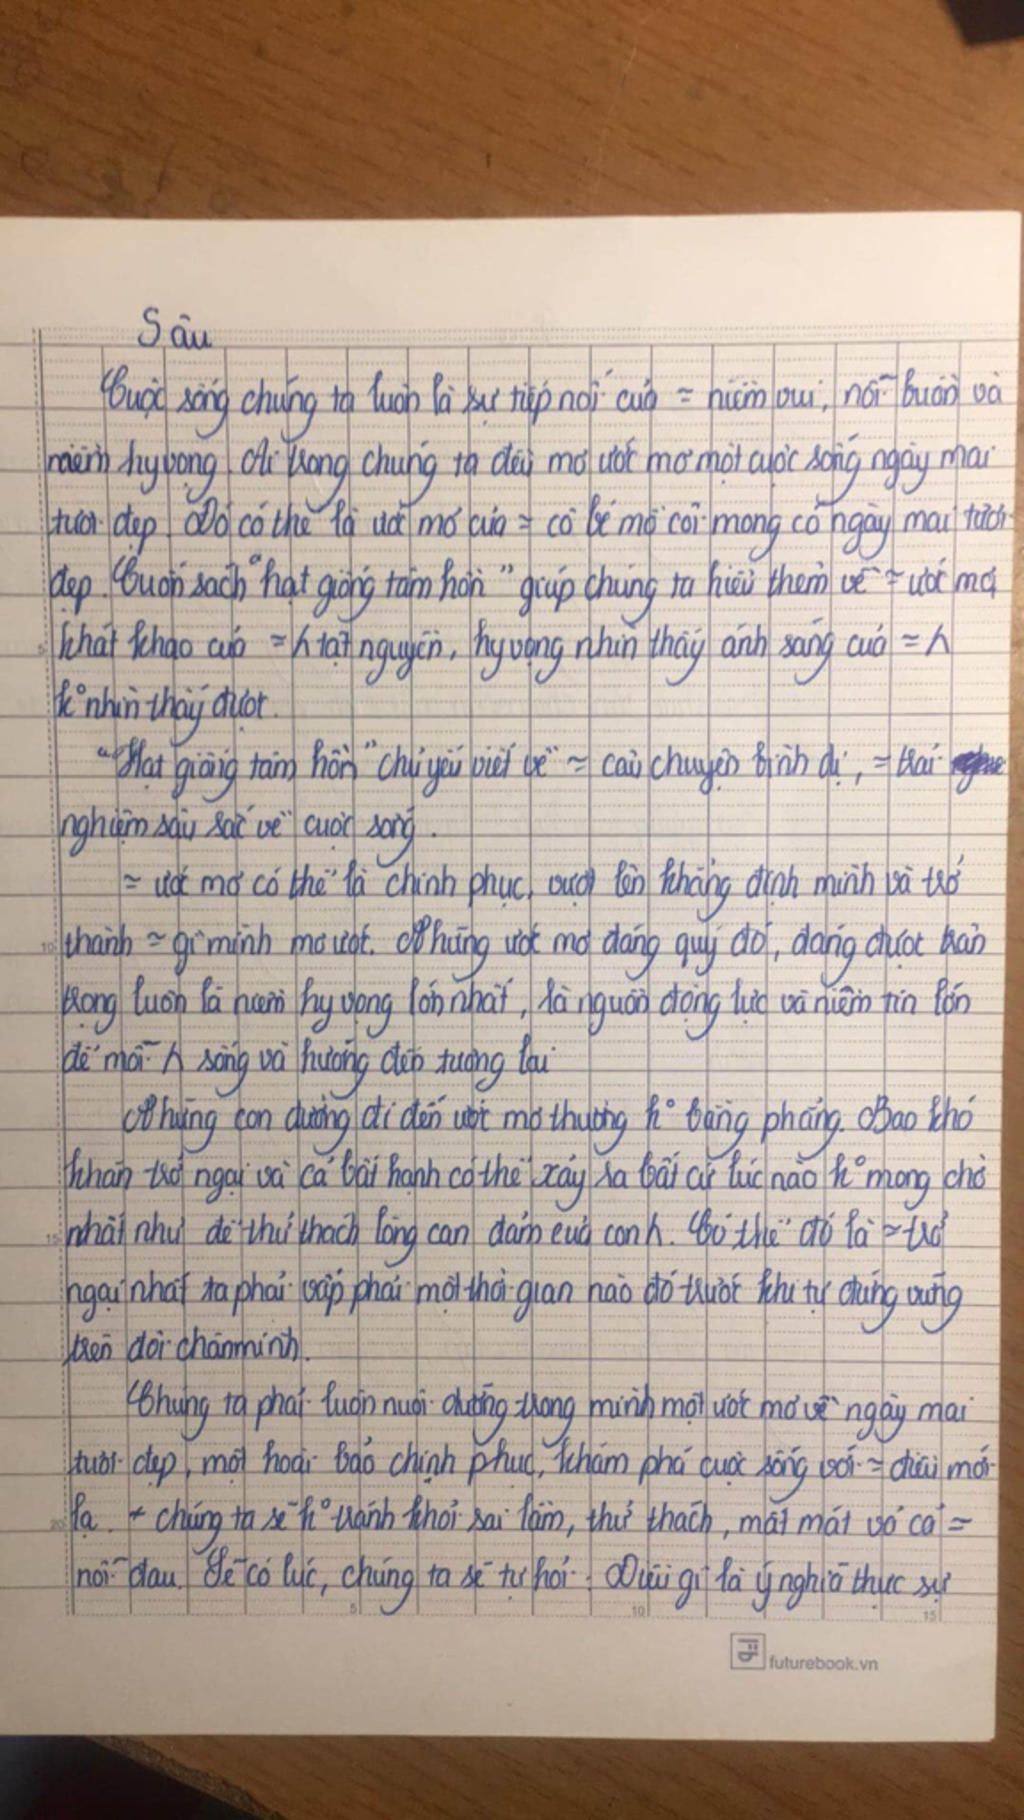 Sâu
Cuộc sống chúng ta luôn là sự tiếp nối của = niềm vui, nỗi buồn và
niềm hy vọng. Ai trong chúng ta đều mơ ước mơ một cuộc sống ngày mai
tươi đẹp. Đó có thể là ước mơ của = cô bé mồ côi mong có ngày mai tươi
đẹp. Cuốn sách "hạt giống tâm hồn" giúp chúng ta hiểu thêm về = ước mơ,
khát khao của = h tật nguyền, hy vọng nhìn thấy ánh sáng của = h
k° nhìn thấy được.
"Hạt giống tâm hồn" chủ yếu viết về = câu chuyện bình dị, = trải
nghiệm sâu sắc về cuộc sống.
= ước mơ có thể là chinh phục, vượt lên khẳng định mình và trở
thành = gì mình mơ ước. Những ước mơ đáng quý đó, đáng được trân
trọng luôn là niềm hy vọng lớn nhất, là nguồn động lực và niềm tin lớn
để mỗi h sống và hướng đến tương lai
Những con đường đi đến ước mơ thường k° bằng phẳng. Bao khó
khăn trở ngại và cả bất hạnh có thể xảy ra bất cứ lúc nào k° mong chờ
nhất như để thử thách lòng can đảm của con h. Có thể đó là = trở
ngại nhất ta phải vấp phải một thời gian nào đó trước khi tự đứng vững
trên đôi chân mình.
Chúng ta phải luôn nuôi dưỡng trong mình một ước mơ về ngày mai
tươi đẹp, một hoài bão chinh phục, khám phá cuộc sống với = điều mới
lạ. + chúng ta sẽ k° tránh khỏi sai lầm, thử thách, mất mát và cả =
nỗi đau. Sẽ có lúc, chúng ta sẽ tự hỏi: Điều gì là ý nghĩa thực sự
5
10
15
20
5 10 15
futurebook.vn